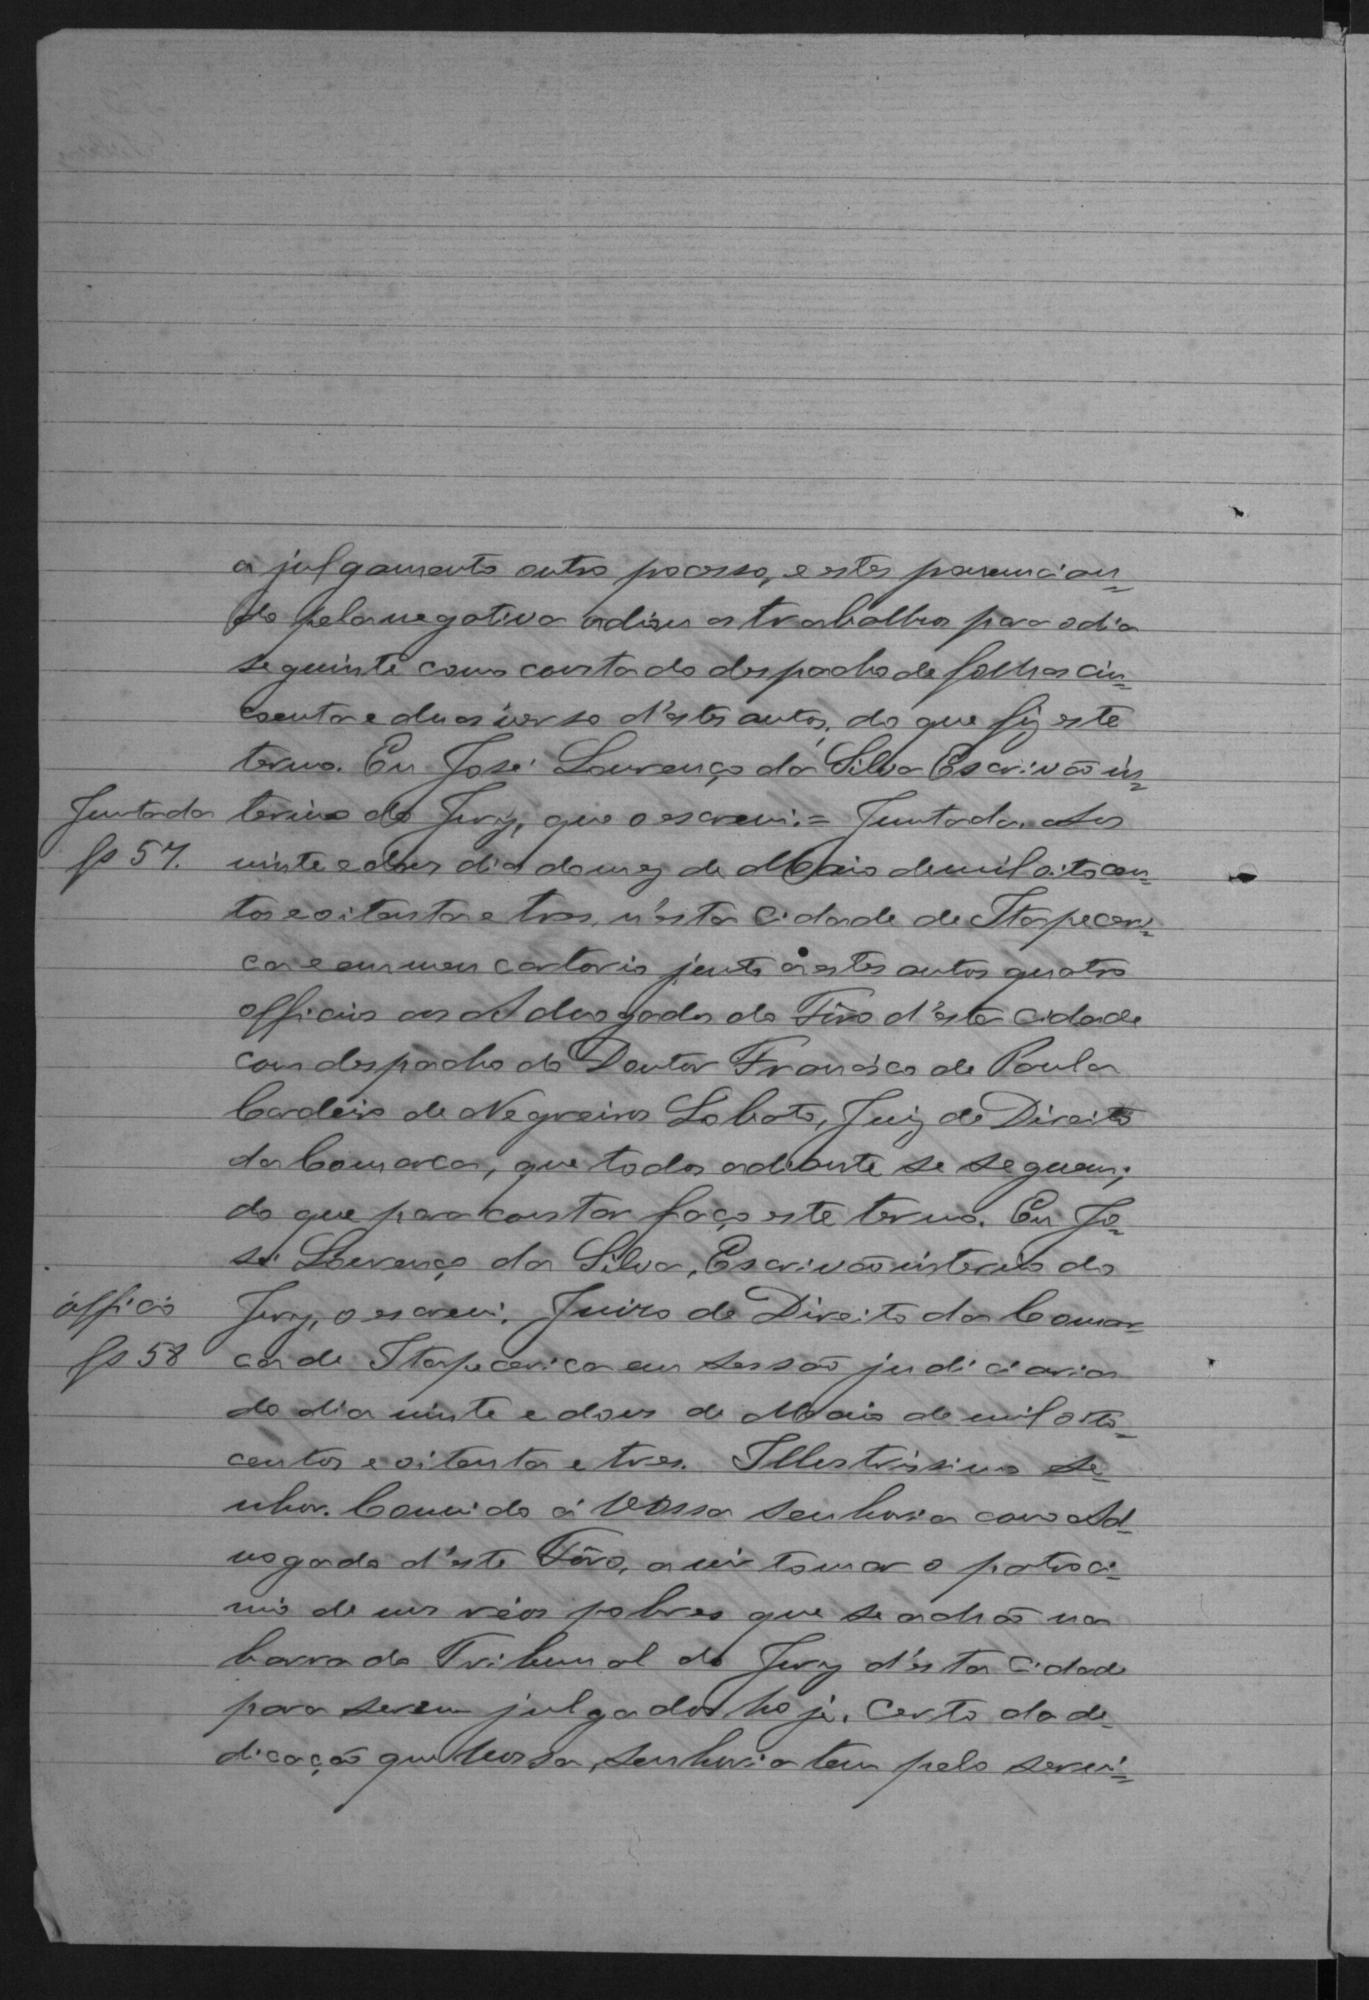 a julgamento outro processo, e estes pronuncian=
do pela negativa adiou os trabalhos para o dia
seguinte como consta do despacho de folhas cin=
coenta e duas verso d'estes autos, do que fiz este
termo. Eu José Lourenço da Silva Escrivão in=
Juntada
fs 57.
terino do Jury, que o escrevi. = Juntada. Aos
vinte e dous dia do mez de Maio de mil oitocen=
tos e oitenta e tres, n'esta Cidade de Itapeceri=
ca e em meu cartorio junto á estes autos quatro
officios aos Advogados do Fôro d'esta Cidade
com despacho do Doutor Francisco de Paula
Cordeiro de Negreiros Lobato, Juiz de Direito
da Comarca, que todos adeante se seguem;
do que para constar faço este termo. Eu Jo=
sé Lourenço da Silva, Escrivão interino do
officio
fs 58
Jury, o escrevi. Juizo de Direito da Comar=
ca de Itapecerica em sessão judiciaria
do dia vinte e dous de Maio de mil oito=
centos e oitenta e tres. Illustrissimo Se=
nhor. Convido á Vossa Senhoria como Ad=
vogado d'este Fôro, a vir tomar o patroci=
nio de uns réos pobres que se achão na
barra do Tribunal do Jury d'esta Cidade
para serem julgados hoje. Certo da de=
dicação que Vossa Senhoria tem pelo servi=